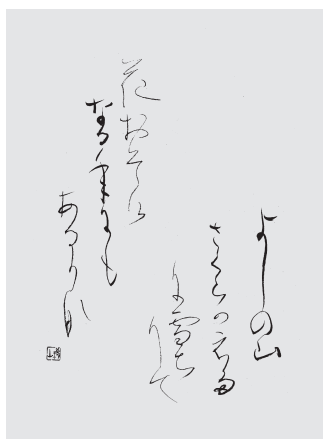 よしの山
さくらかえた
に雪ちりて
花おそけ
なる年にも
あるかな